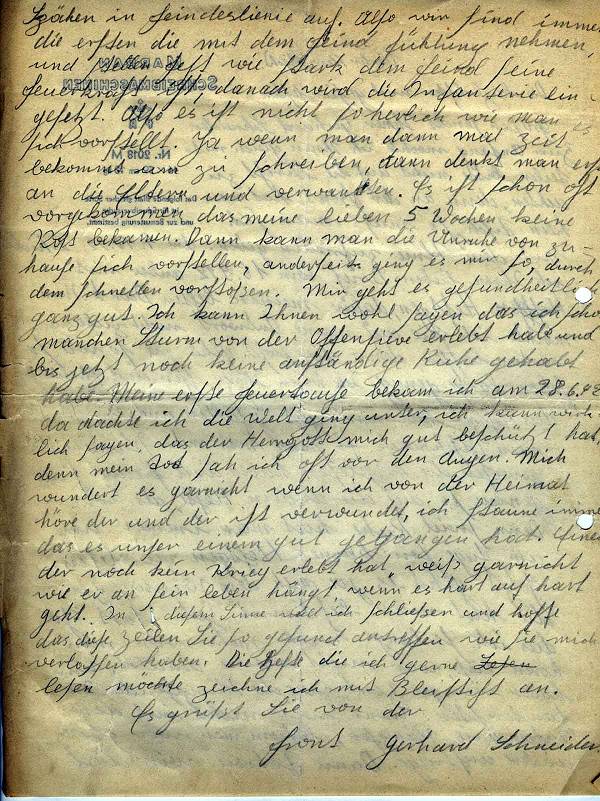 in feindeslienie auf. Also wir sind immer
die ersten die mit dem feind fühlung nehmen,
und wie stark dem feind seine
feuerkraft ist, danach wird die Infanterie ein-
gesetzt. Also es ist nicht so herlich wie man
sich vorstellt. Ja wenn man dann mal zeit
bekommt um zu schreiben, dann denkt man erst
an die Eldern und verwanten. Es ist schon oft
vorgekommen das meine lieben 5 Wochen keine
Post bekamen. Dann kann man die Unruhe von zu-
hause sich vorstellen, anderseits ging es mir so, durch
dem schnellen vorstoßen. Mir geht es gesundheitlich
ganz gut. Ich kann Ihnen wohl sagen das ich schon
manchen Sturm von der Offensieve erlebt habe und
bis jetzt noch keine anständige Ruhe gehabt
habe. Meine erste feuertaufe bekam ich am 28.6.42
da dachte ich die Welt ging unter, ich kann wirk-
lich sagen, das der Herrgott mich gut beschützt hat,
denn mein Tod sah ich oft vor den Augen. Mich
wundert es garnicht wenn ich von der Heimat
höre der und der ist verwundet, ich staune immer
das es unser einem gut gegangen hat. Einer
der noch kein Krieg erlebt hat weiß garnicht
wie er an sein leben hängt, wenn es hart auf hart
geht. In diesem Sinne will ich schließen und hoffe
das diese zeilen Sie so gesund antreffen wie sie mich
verlassen haben. Die Hefte die ich gerne Lesen
lesen möchte zeichne ich mit Bleistift an.
Es grüßt Sie von der
front Gerhard Schneider
MASCHINEN
Nr. 2018 M